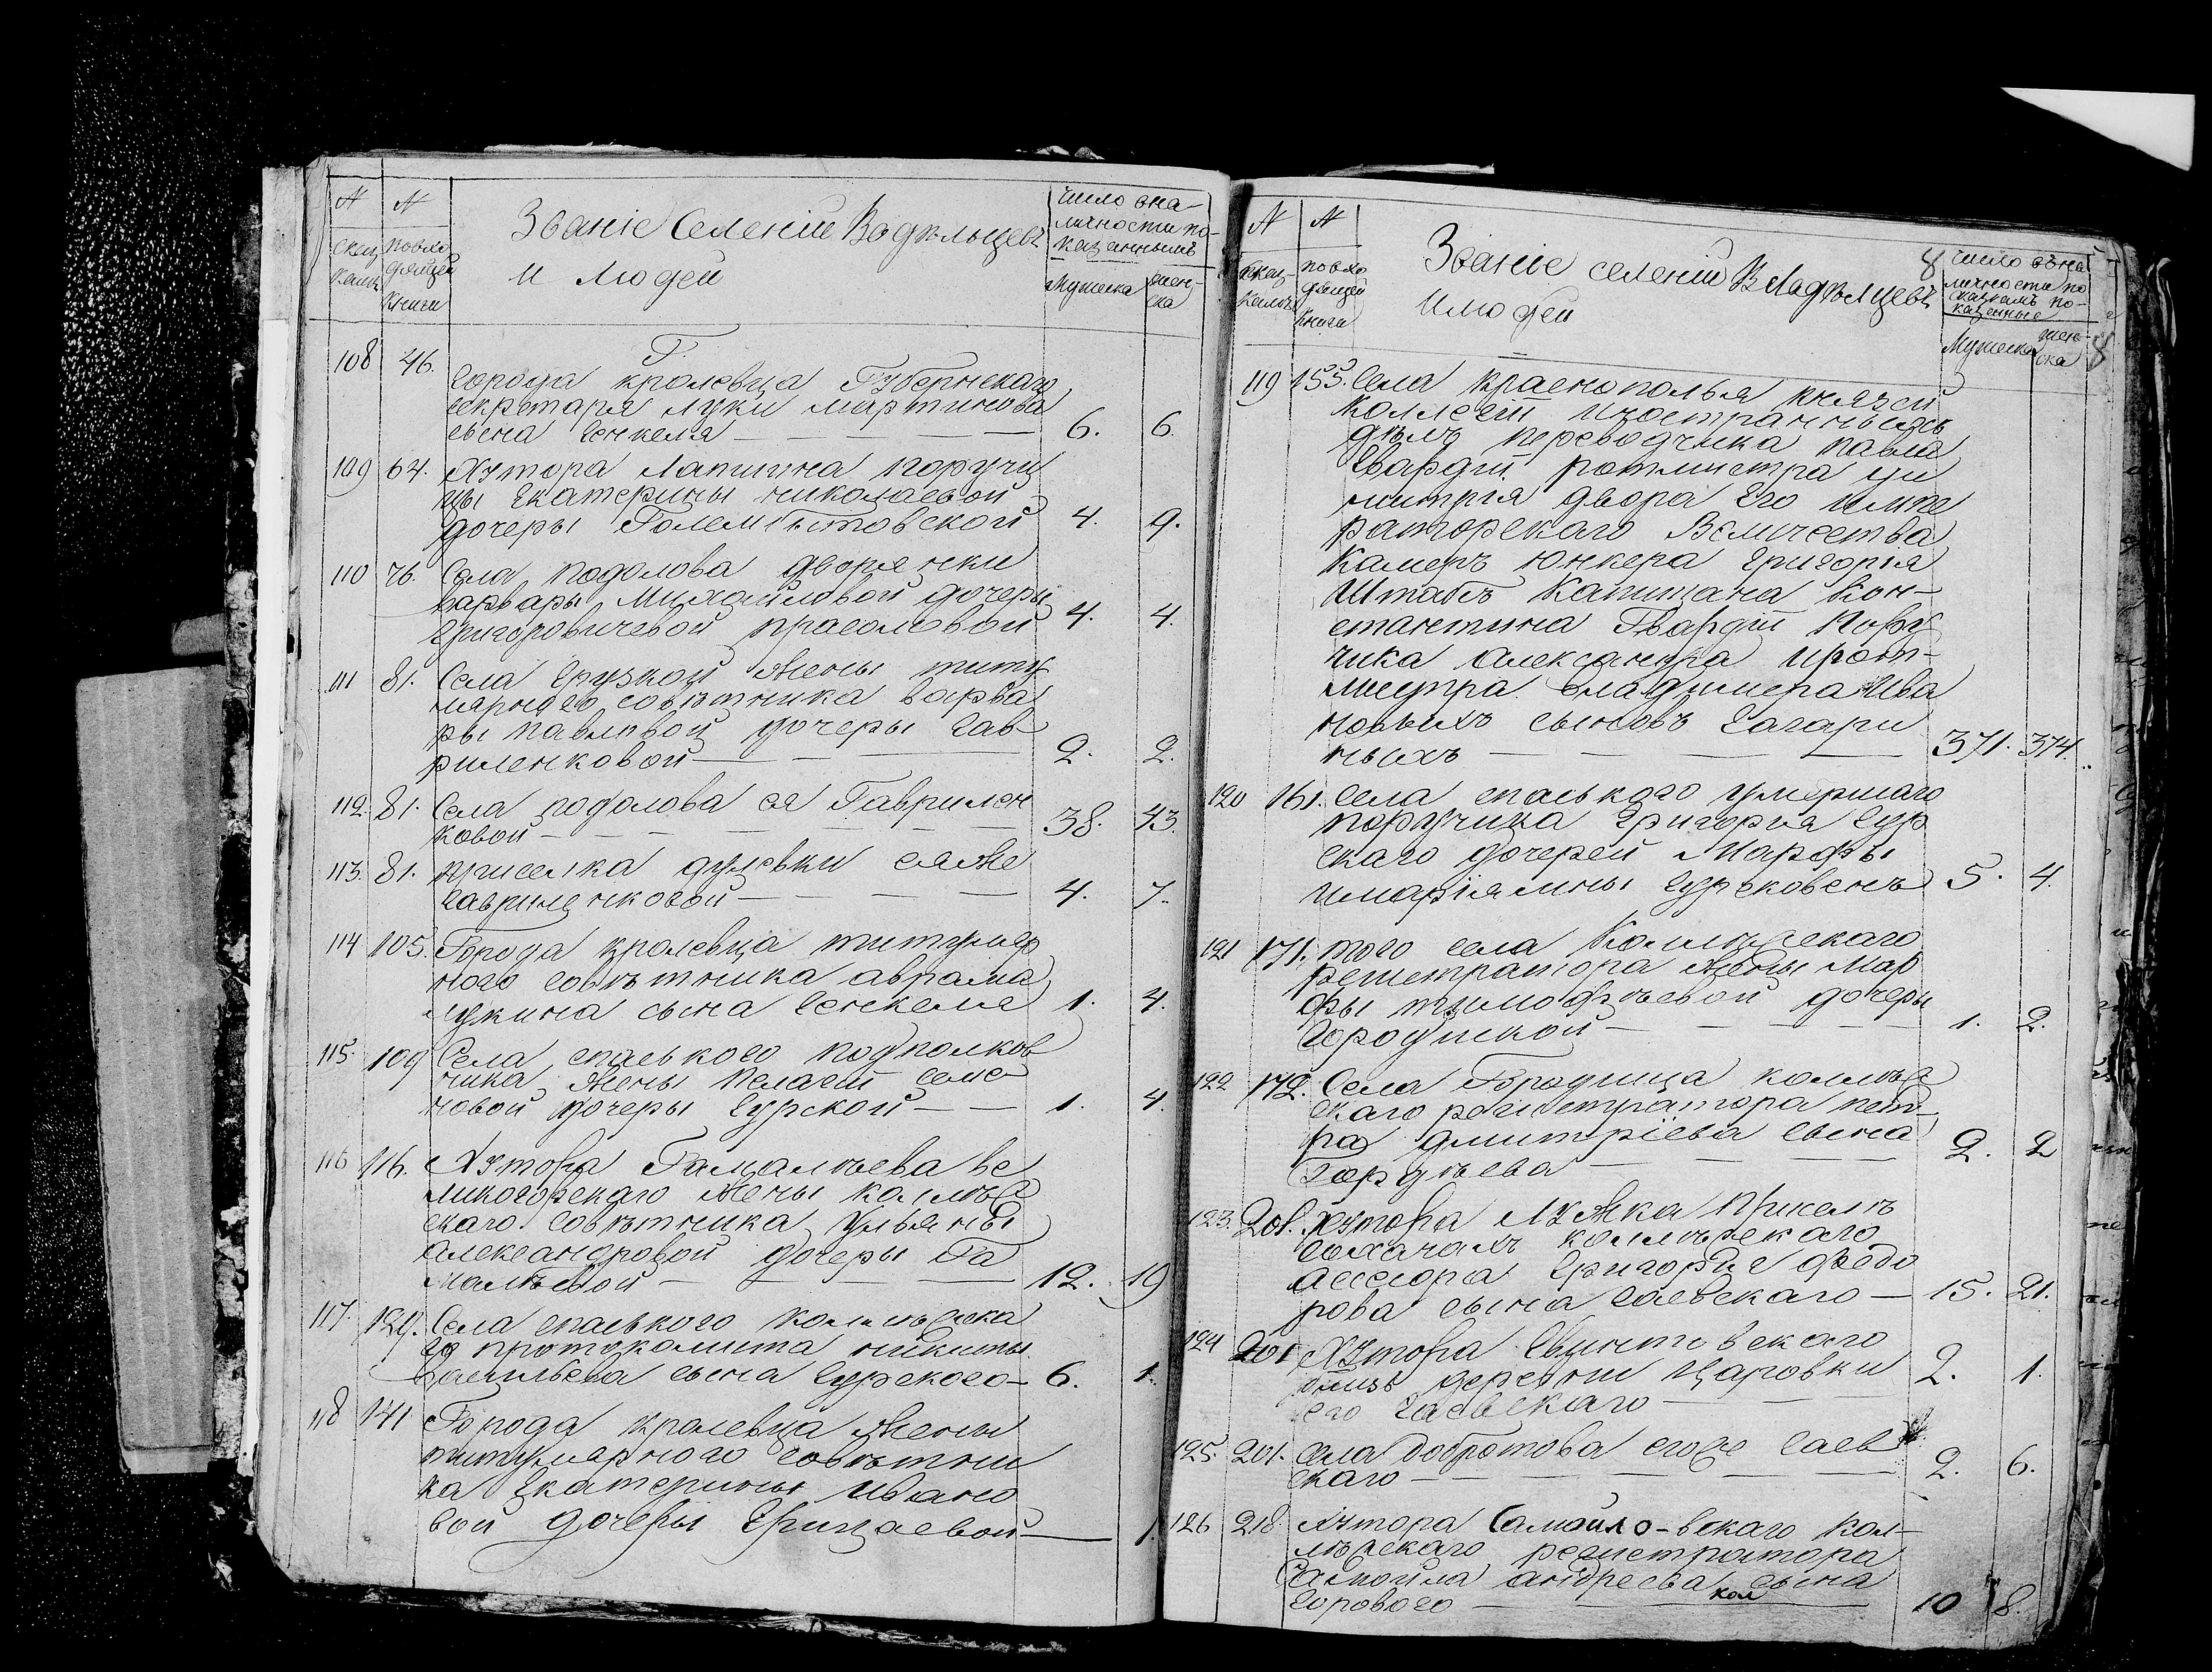 N N Званіе Селеній Водѣльцевъ
и людей
число в на-
личности по-
казаннымъ
сказ
камъ
повхо
дящей
книги
Мужеска
жен-
ска
Г.
108 46.
города кролевца Губернскаго
секретаря луки мартинова
сына Генкеля 6. 6.
109 64. Хутора Лапшина поручи
цы Екатерины николаевой
дочеры Голембѣтовской 4. 9.
110 76. Села подолова дворянки
варвары Михайловой дочеры
григоровичевой прасоловой 4. 4.
111 81. Села грузкой жены титу
лярного совѣтника варва
ры павловой дочеры гав
риленковой 2. 2.
112. 81. Села подолова ея Гаврилен
ковой 38. 43.
113. 81. приселка дулевки еяже
гавриленковой 4. 7.
114 105. Города кролевца титуляр
ного совѣтника аврама
лукина сына генкеля 1. 4.
115. 109 Села спаского подполков
ника жены пелагеи семе
новой дочеры гурской 1. 4.
116 116. Хутора Гамалѣева ве
ликогорскаго жены коллѣж
скаго совѣтника Ульяны
александровой дочеры Га
малѣевой 12. 19
117. 129. Села спаского коллѣжска
го протоколиста никиты
васильева сына гурского 6. 1.
118 141 Города кролевца жены
титулярного совѣтни
ка Екатерины ивано
вой дочеры Грицаевой 1.
N N Званіе селеній Владѣлцевъ
и людей
8
число в на
личности по
сказкамъ по-
казанные
сказ-
камъ
повхо
дящей
книги
Мужеска
жен-
ска
8
119 155. Села краснополья князей
коллегіи иностранныхъ
дѣлъ переводчика павла
Гвардіи ротмистра ди
митрія двора Его импе
раторскаго Величества
Камеръ юнкера григорія
Штабъ Капитана Кон-
стантина Гвардіи Пору
чика Александра и рот-
мистра Владимера Ива
новыхъ сыновъ гагари
ныхъ 371. 374.
120 161. Села спаського умершаго
поручика григорія гур
скаго дочерей Марфы
и маріямны гурсковенъ 5. 4.
121 171. того села Коллѣжскаго
регистратора жены мар
фы тимофѣевой дочеры
городиской 1. 2.
122 172. Села Городища коллѣж
скаго регистратора пет-
ра дмитріева сына
гордѣева 2. 2
123. 201. хутора Лужка При селѣ
сохачахъ коллѣжскаго
асесора григорія федо
рова сына гаевскаго 15. 21.
124 201 Хутора Свинтовскаго
близъ деревни царовки
его гаевскаго 2. 1.
125. 201. Села Добротова егоже гаев
скаго 2. 6.
126 218. хутора Самойло-вскаго Кол-
лѣжскаго регистратора
Самойла андреева сына
горового кол 10 8.